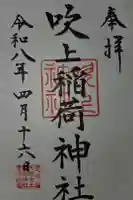 奉拝
吹上稲荷神社
令和八年四月十六日